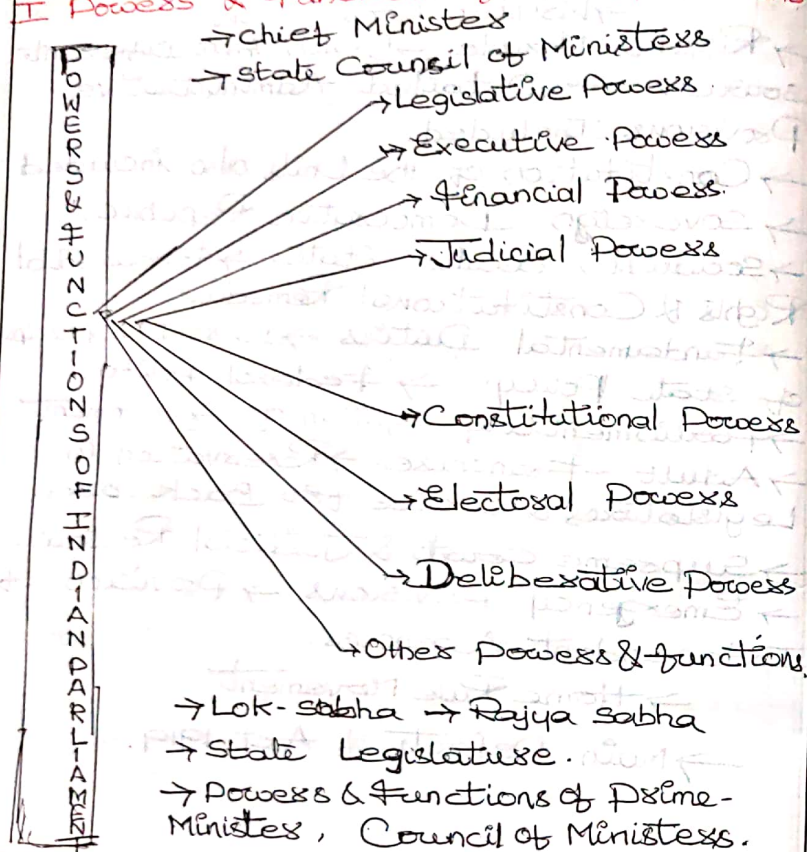 I Powers &
→ Chief Minister
→ State Counsil of Ministers
POWERS & FUNCTIONS OF INDIAN PARLIAMENT
→ Legislative Powers
→ Executive Powers
→ Financial Powers.
→ Judicial Powers
→ Constitutional Powers
→ Electoral Powers
→ Deliberative Powers
→ Other Powers & functions.
→ Lok-sabha → Rajya sabha
→ State Legislature.
→ Powers & Functions of Prime-
Minister, Council of Ministers.